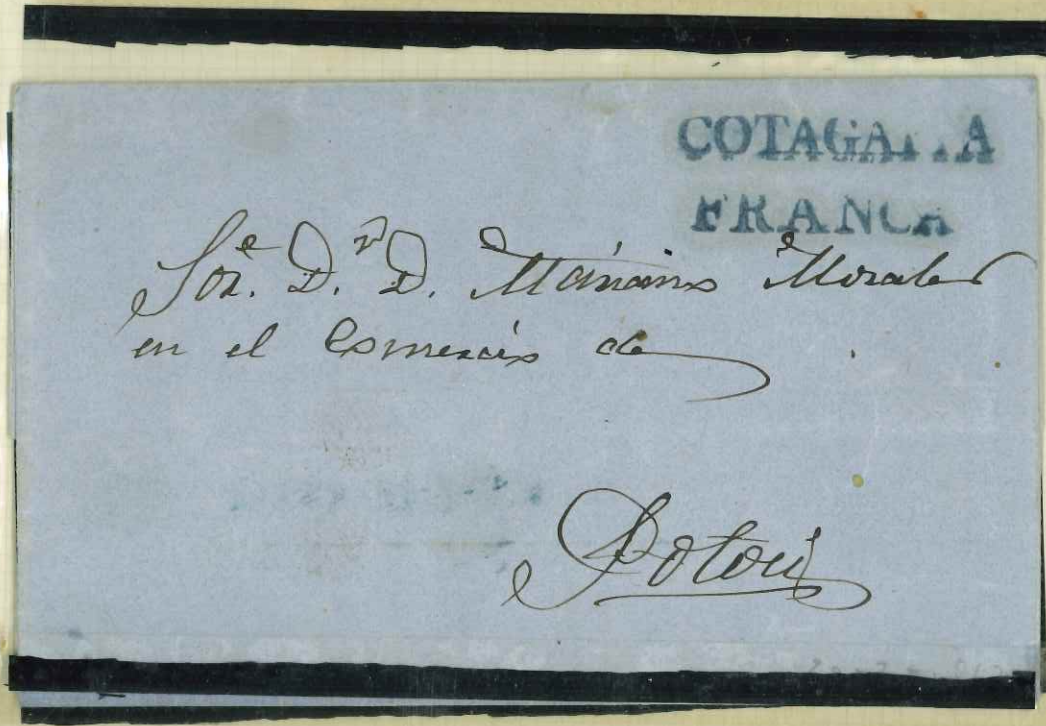 COTAGAITA
FRANCA
Sor. Dn. D. Mariano Morales
en el Comercio de
Potosí